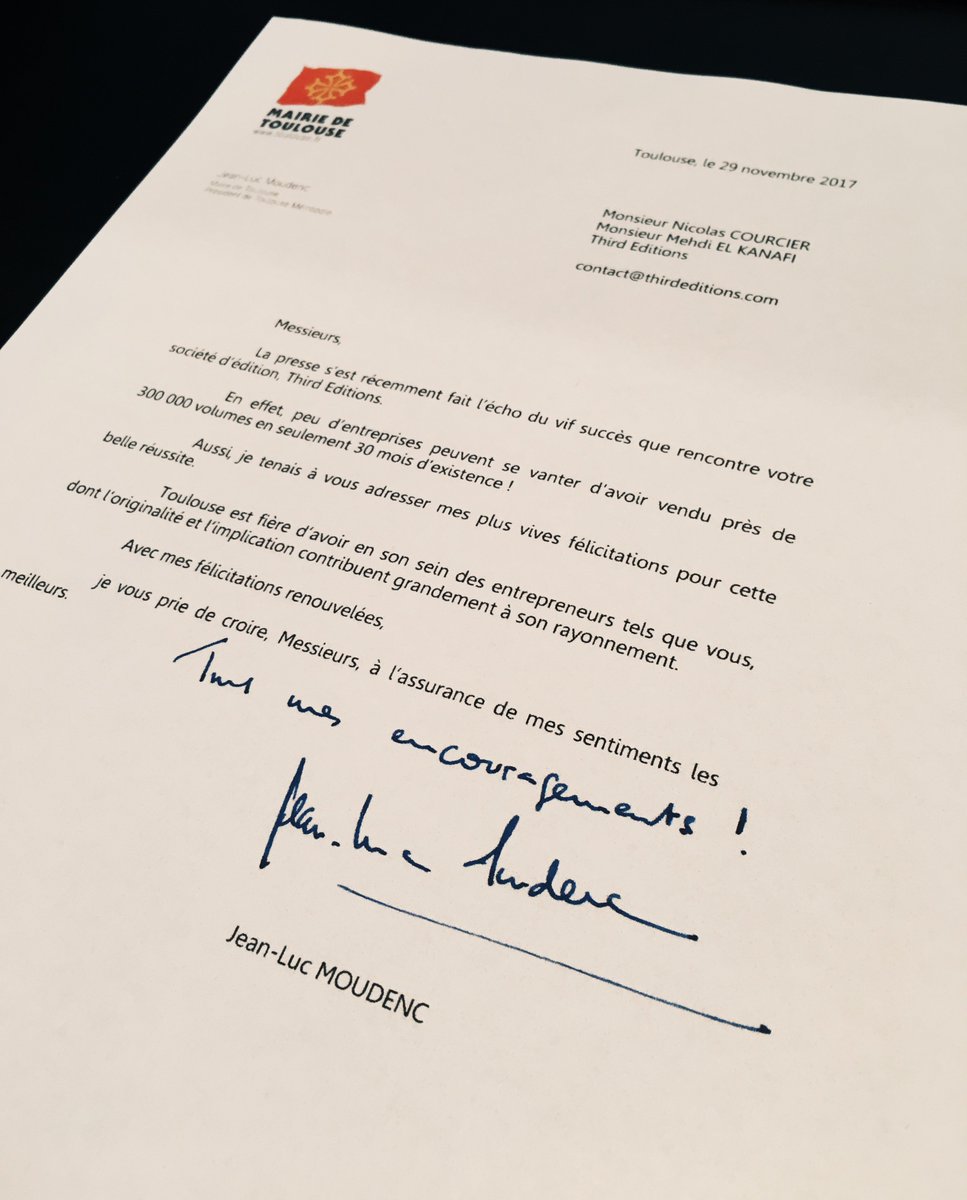 MAIRIE DE
TOULOUSE
www.toulouse.fr
Jean-Luc Moudenc
Maire de Toulouse
Président de Toulouse Métropole
Toulouse, le 29 novembre 2017
Monsieur Nicolas COURCIER
Monsieur Mehdi EL KANAFI
Third Editions
contact@thirdeditions.com
Messieurs,
La presse s'est récemment fait l'écho du vif succès que rencontre votre
société d'édition, Third Editions.
En effet, peu d'entreprises peuvent se vanter d'avoir vendu près de
300 000 volumes en seulement 30 mois d'existence !
Aussi, je tenais à vous adresser mes plus vives félicitations pour cette
belle réussite.
Toulouse est fière d'avoir en son sein des entrepreneurs tels que vous,
dont l'originalité et l'implication contribuent grandement à son rayonnement.
Avec mes félicitations renouvelées,
je vous prie de croire, Messieurs, à l'assurance de mes sentiments les
meilleurs.
Tous mes encouragements !
Jean-Luc Moudenc
Jean-Luc MOUDENC